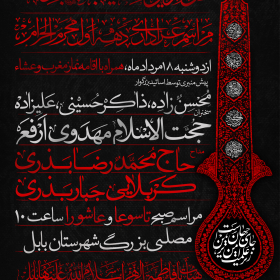 مراسم عزاداری دهه اول محرم الحرام
از دوشنبه ۱۸ مرداد ماه، همراه با اقامه نماز مغرب و عشاء
پیش منبری توسط اساتید بزرگوار
محسن زاده، ذاکر حسینی، علیزاده
سخنران
حجت الاسلام مهدوی ارفع
مداح
حاج محمدرضا بذری
کربلایی جبار بذری
مراسم صبح تاسوعا و عاشورا ساعت ۱۰
مصلی بزرگ شهرستان بابل